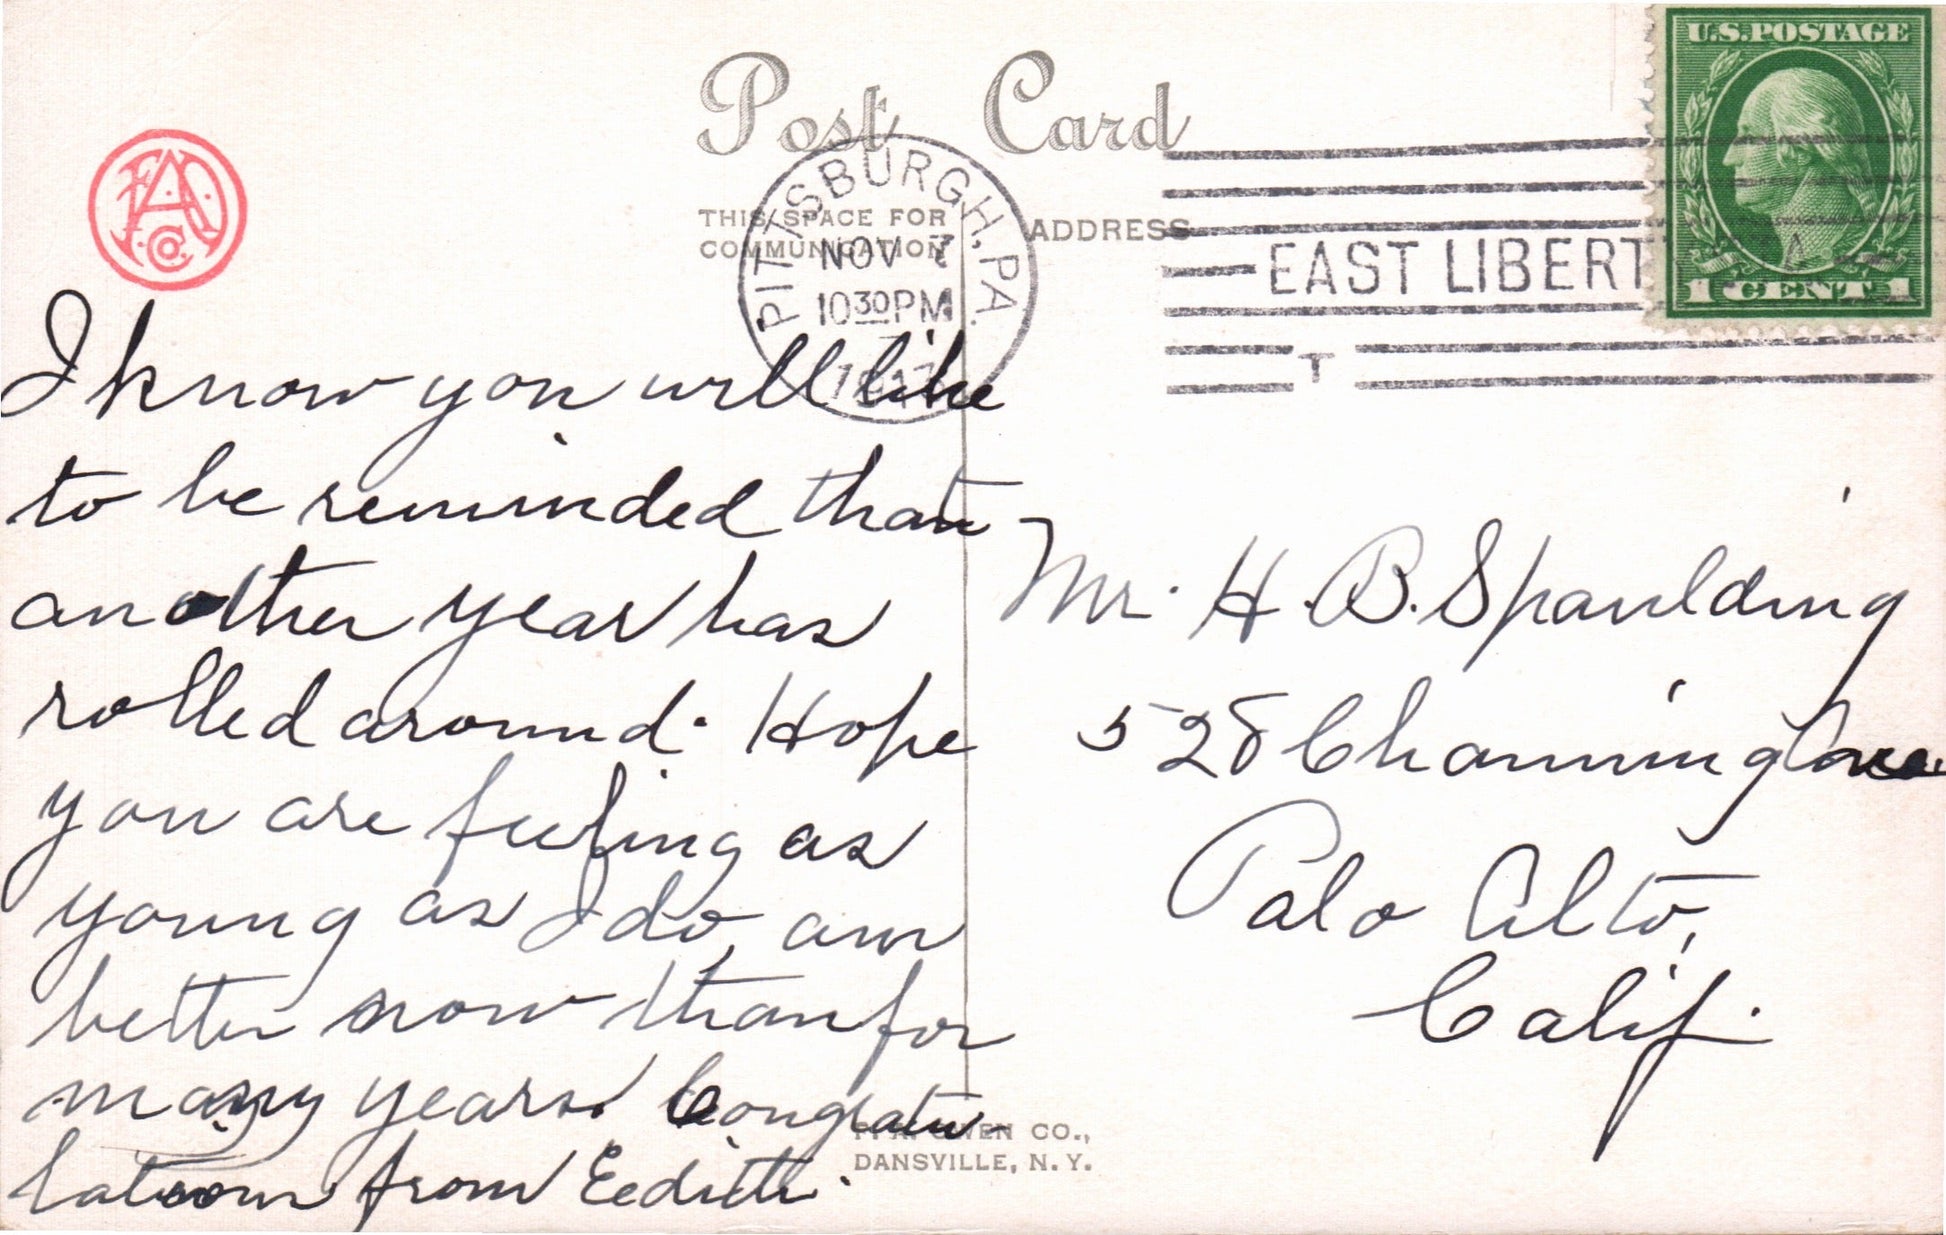 Post Card
THIS SPACE FOR
COMMUNICATION
ADDRESS
U.S. POSTAGE
1 CENT 1
PITTSBURGH, PA.
NOV
10 30 PM
1917
EAST LIBERT
T
FAOCo.
I know you will like
to be reminded that
another year has
rolled around. Hope
you are feeling as
young as I do, am
better now than for
many years. Congratu-
lations from Eedith.
Mr. H. B. Spaulding
528 Channing Ave.
Palo Alto,
Calif.
OWEN CO.,
DANSVILLE, N. Y.